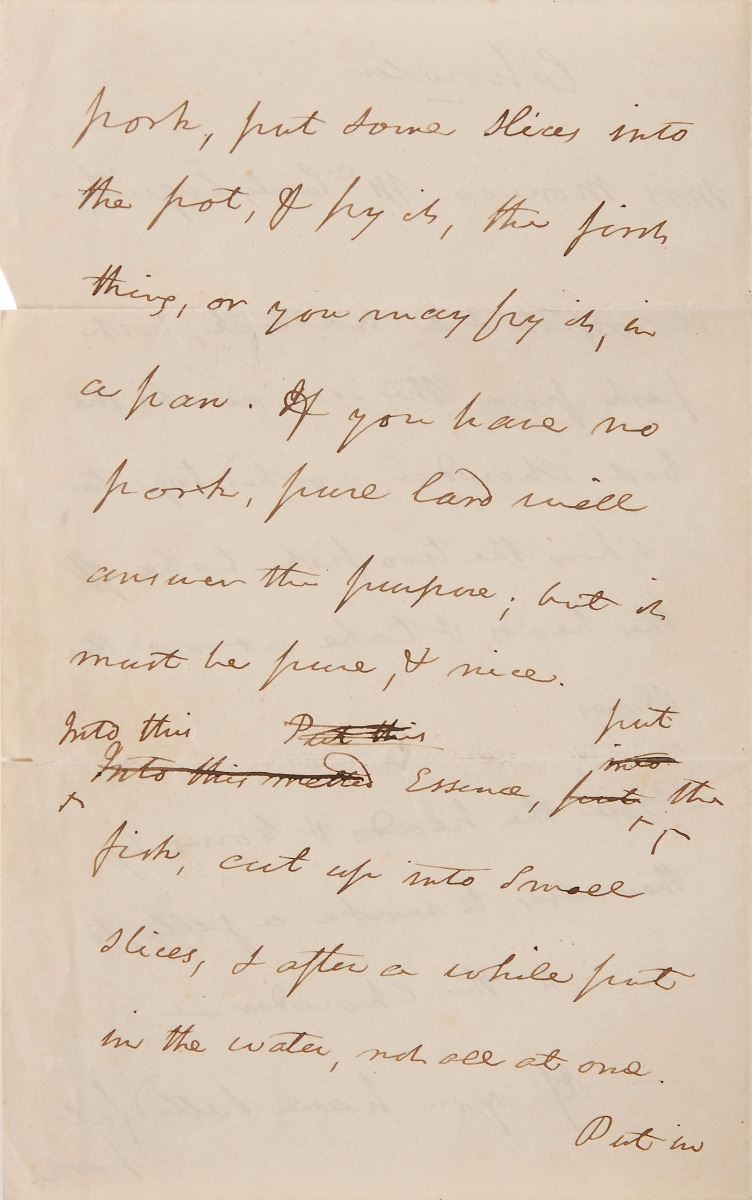 pork, put some slices into
the pot, & fry it, the first
thing, or you may fry it, in
a pan. If you have no
pork, pure lard will
answer the purpose; but it
must be pure, & nice.
Into this Put this put
into
Into this melted Essence, put the
fish, cut up into small
slices, & after a while put
in the water, not all at once.
Put in